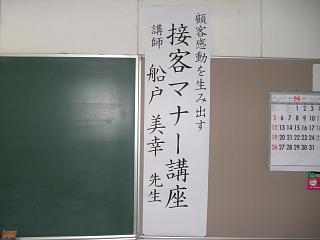 顧客感動を生み出す
接客マナー講座
講師 船戸 美幸 先生
5
12 13 14 15 16 17 18
19 20 21 22 23 24 25
26 27 28 29 30 31